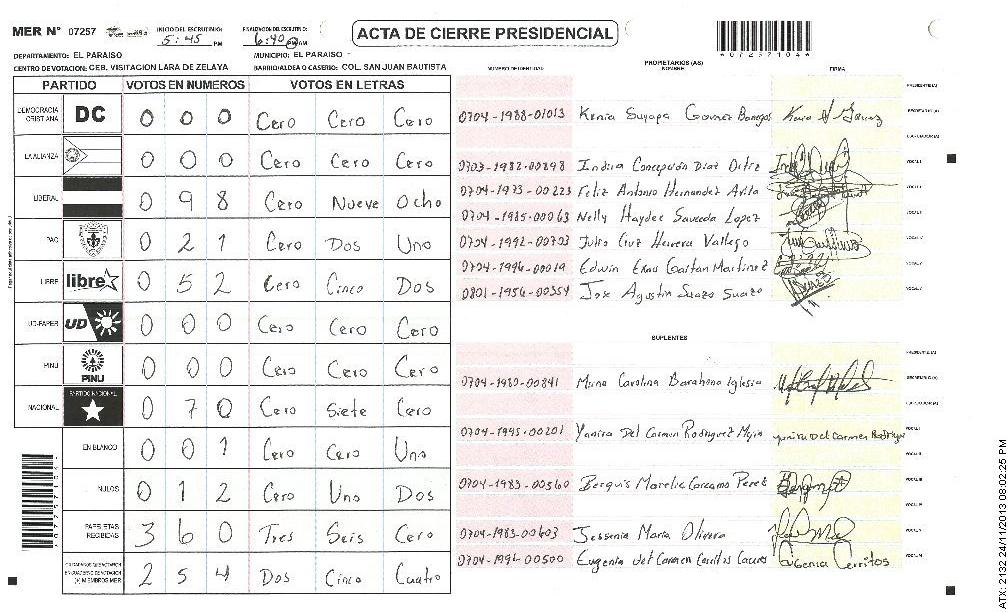 MER N° 07257 INICIO DEL ESCRUTINIO: 5:45 PM FINALIZACIÓN DEL ESCRUTINIO: 6:40 PM AM
ACTA DE CIERRE PRESIDENCIAL
*07257104*
DEPARTAMENTO: EL PARAISO MUNICIPIO: EL PARAISO
CENTRO DE VOTACION: CEB. VISITACION LARA DE ZELAYA BARRIO/ALDEA O CASERIO: COL. SAN JUAN BAUTISTA
PARTIDO VOTOS EN NUMEROS VOTOS EN LETRAS
DEMOCRACIA CRISTIANA DC 0 0 0 Cero Cero Cero
LA ALIANZA 0 0 0 Cero Cero Cero
LIBERAL 0 9 8 Cero Nueve Ocho
PAC 0 2 1 Cero Dos Uno
LIBRE libre 0 5 2 Cero Cinco Dos
UD-FAPER UD 0 0 0 Cero Cero Cero
PINU PINU 0 0 0 Cero Cero Cero
NACIONAL PARTIDO NACIONAL 0 7 0 Cero Siete Cero
EN BLANCO 0 0 1 Cero Cero Uno
NULOS 0 1 2 Cero Uno Dos
PAPELETAS RECIBIDAS 3 6 0 Tres Seis Cero
(+) MIEMBROS MER 2 5 4 Dos Cinco Cuatro
PROPIETARIOS (AS)
NUMERO DE IDENTIDAD NOMBRE FIRMA
PRESIDENTE (A)
0704-1988-01013 Kenia Suyapa Gomez Banegas SECRETARIO (A)
ESCRUTADOR (A)
0703-1982-00898 Indira Concepción Diaz Ortez VOCAL I
0704-1973-00223 Feliz Antonio Hernandez Avila
0704-1985-00063 Nelly Haydee Sauceda Lopez
0704-1992-00703 Julio Cruz Herrera Vallejo
0704-1996-00019 Edwin Enas Gaitan Martinez
0801-1956-00554 Jose Agustin Suazo Suazo
SUPLENTES
PRESIDENTE (A)
0704-1980-00841 Mirna Carolina Barahona Iglesia SECRETARIO (A)
ESCRUTADOR (A)
0704-1995-00201 Yanira Del Carmen Rodriguez Mejia Yanira Del Carmen Rodriguez
0704-1983-00560 Berquis Marelia Carcamo Perez
0704-1983-00603 Jessenia Maria Olivera
0704-1996-00500 Eugenia del Carmen Cerritos Caceres Eugenia Cerritos
ATX: 2132 24/11/2013 08:02:25 PM